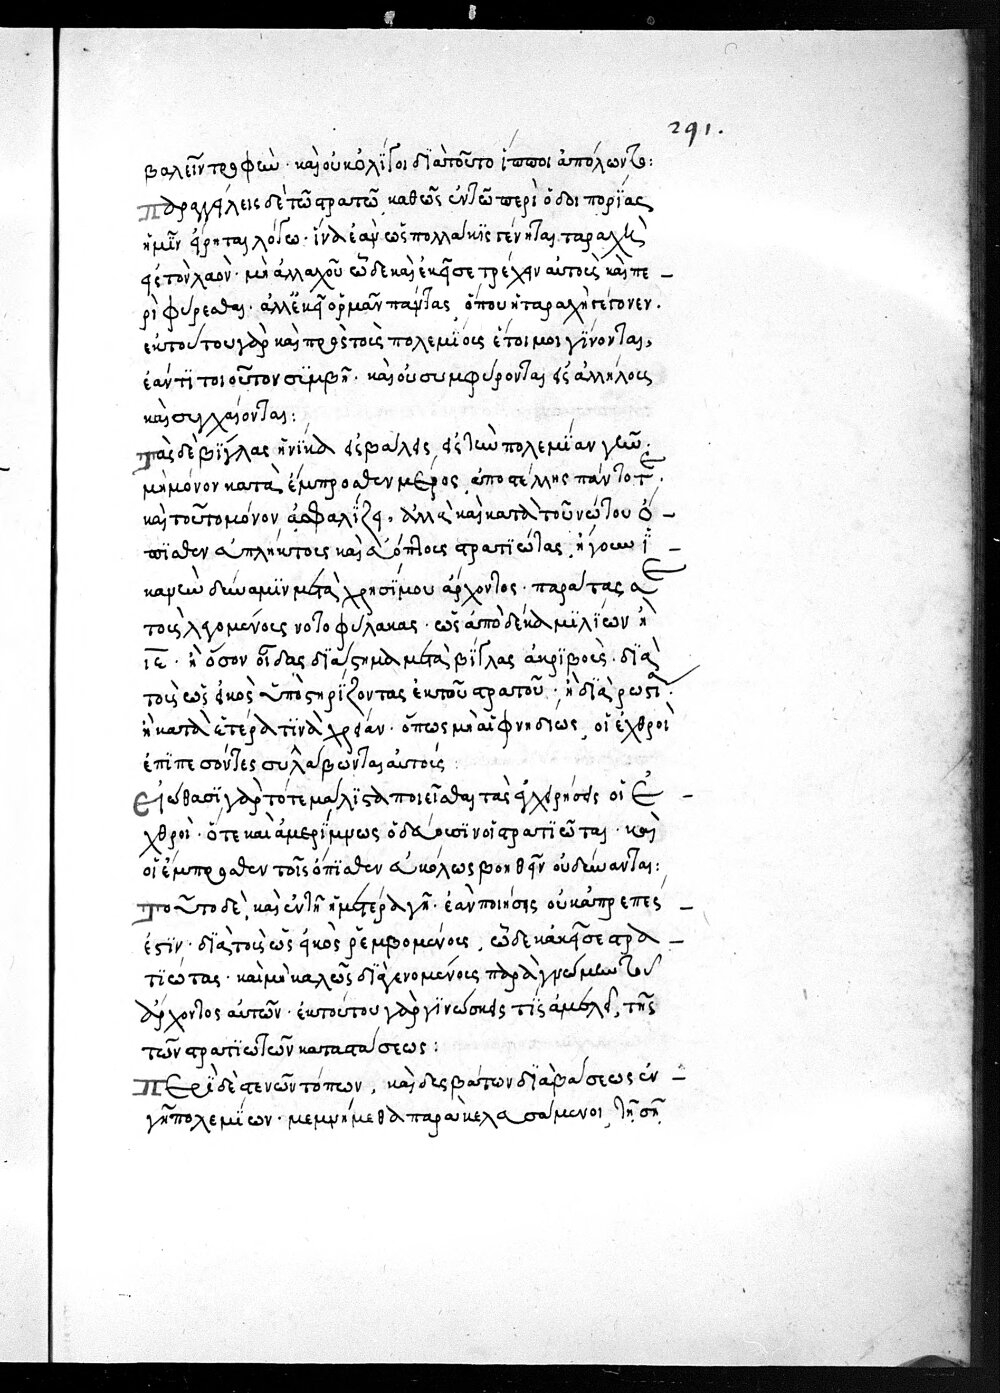 291.
βαλεῖν τροφὴν· καὶ οὐκ ὀλίγοι διὰ τοῦτο ἵπποι ἀπόλωνται:
Παραγγέλεις δὲ τῶ στρατῶ, καθὼς ἐν τῶ περὶ ὁδοιπορίας
ἡμῖν εἴρηται λόγω· ἵνα ἐὰν ὡς πολλάκις γένηται ταραχὴ
εἰς τὸν λαὸν· μὴ ἀλλαχοῦ ὧδε καὶ ἐκεῖσε τρέχειν αὐτοὺς καὶ πε
ριφύρεσθαι· ἀλλ' ἐκεῖ ὁρμᾶν πάντας, ὅπου ἡ ταραχὴ γέγονεν.
ἐκ τούτου γὰρ καὶ πρὸς τοὺς πολεμίους ἕτοιμοι γίνονται,
ἐάν τι τοιοῦτον συμβῆ· καὶ οὐ συμφύρονται εἰς ἀλλήλους
καὶ συγχέονται:
Τὰς δὲ βίγλας ἡνίκα εἰσβάλεις εἰς τὴν πολεμίαν γῆν.
μὴ μόνον κατὰ ἔμπροσθεν μέρος, ἀποστέλλης πάντοτε.
καὶ τοῦτο μόνον ἀσφαλίζει, ἀλλὰ καὶ κατὰ τοῦ νώτου ὀ
πίσθεν ἀπλήκτοις καὶ εὐόπλοις στρατιώτας, ἤγουν ἱ
κανὴν δύναμιν μετὰ χρησίμου ἄρχοντος· παρεᾶσας
τοὺς λεγομένους νοτοφύλακας· ὡς ἀπὸ δέκα μιλίων ἢ
ιε· ἢ ὅσον οἶδας διάστημα μετὰ βίγλας ἀκριβοὺς· διὰ
τοὺς ὡς εἰκὸς ὑποστηρίζοντας ἐκ τοῦ στρατοῦ· ἢ δι' ἀρωστίαν·
ἢ κατὰ ἑτέρα τινὰ χρείαν· ὅπως μὴ αἰφνηδίως, οἱ ἐχθροὶ
ἐπιπεσόντες συλλάβωνται αὐτούς:
Εἰώθασι γὰρ τότε μάλιστα ποιεῖσθαι τὰς ἐγχειρήσεις οἱ ἐ
χθροὶ· ὅτε καὶ ἀμερίμνως ὁδεύουσιν οἱ στρατιῶται· καὶ
οἱ ἔμπροσθεν τοῖς ὄπισθεν εὐκόλως βοηθεῖν οὐ δύνανται:
Τοῦτο δὲ, καὶ ἐν τῆ ἡμετέρα γῆ· ἐὰν ποιήσης οὐκ ἀπρεπές
ἐστιν· διὰ τοὺς ὡς εἰκὸς ῥεμβομένους, ὧδε κἀκεῖσε στρα
τιώτας· καὶ μὴ καλῶς διαγενομένους παρὰ γνώμην τοῦ
ἄρχοντος αὐτῶν· ἐκ τούτου γὰρ γινώσκεις τῆς ἀμελείας, τῆς
τῶν στρατιωτῶν καταστάσεως:
Περὶ δὲ στενῶν τόπων, καὶ δυσβάτων διαβάσεως ἐν
γῆ πολεμίων· μεμνήμεθα παρακελευσάμενοι, τῆ σῆ